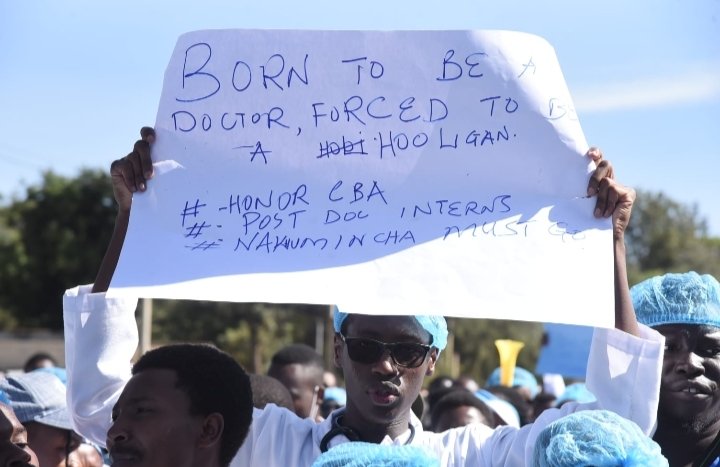 BORN TO BE A
DOCTOR, FORCED TO BE
A HOOLIGAN.
# - HONOR CBA
# - POST DOC INTERNS
# - NAKHUMINCHA MUST GO